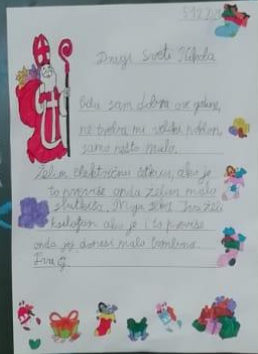 Dragi Sveti Nikola
Bila sam dobra ove godine,
ne treba mi veliki poklon,
samo nešto malo.
Želim električni, ako je
to previše onda želim malo
slatkiša. Moja želi
ako je i to previše
onda joj donesi malo bombona.
Eva G.